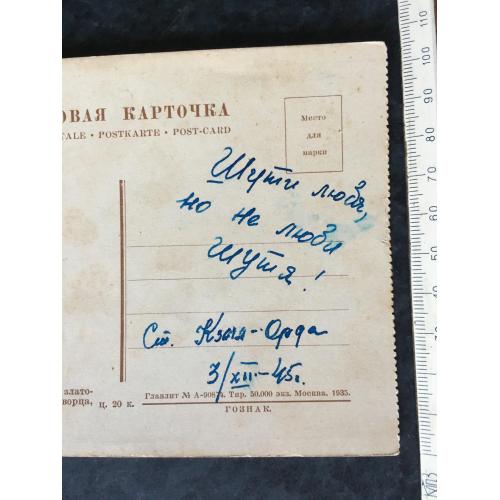 ОВАЯ КАРТОЧКА
TALE • POSTKARTE • POST-CARD
Место
для
марки
Шути любя,
но не люби
шутя!
Ст. Кзыл-Орда
3/XII-45г.
злато-
ворца, ц. 20 к.
Главлит № А-90874. Тир. 50.000 экз. Москва, 1935.
ГОЗНАК.
60
70
80
90
100
110